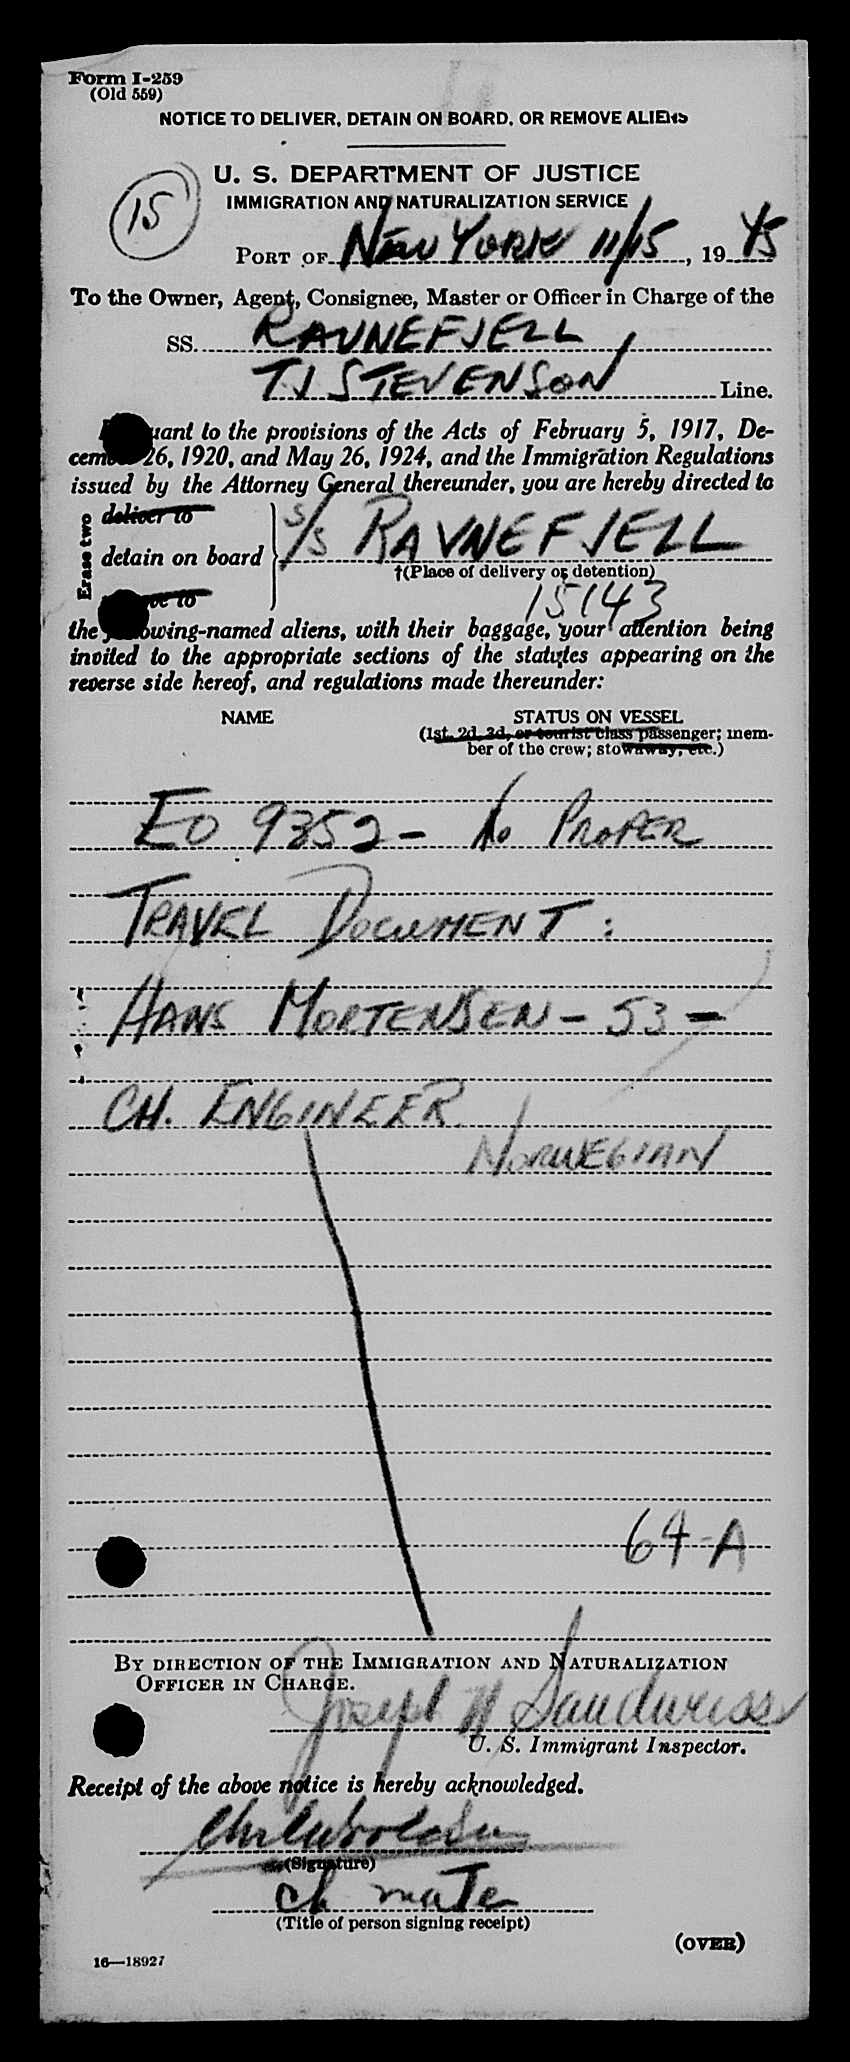 Form I-259
(Old 559)
NOTICE TO DELIVER, DETAIN ON BOARD, OR REMOVE ALIENS
U. S. DEPARTMENT OF JUSTICE
IMMIGRATION AND NATURALIZATION SERVICE
15
PORT OF NEW YORK 11/15, 19 45
To the Owner, Agent, Consignee, Master or Officer in Charge of the
SS. RAVNEFJELL
T J STEVENSON Line.
uant to the provisions of the Acts of February 5, 1917, De-
cem 26, 1920, and May 26, 1924, and the Immigration Regulations
issued by the Attorney General thereunder, you are hereby directed to
Erase two
deliver to
detain on board S/S RAVNEFJELL
†(Place of delivery or detention)
ve to
15143
the owing-named aliens, with their baggage, your attention being
invited to the appropriate sections of the statutes appearing on the
reverse side hereof, and regulations made thereunder:
NAME STATUS ON VESSEL
(1st, 2d, 3d, or tourist class passenger; mem-
ber of the crew; stowaway, etc.)
EO 9352 - No PROPER
TRAVEL DOCUMENT :
HANS MORTENSEN - 53 -
CH. ENGINEER
NORWEGIAN
64-A
BY DIRECTION OF THE IMMIGRATION AND NATURALIZATION
OFFICER IN CHARGE.
Joseph N Sandweiss
U. S. Immigrant Inspector.
Receipt of the above notice is hereby acknowledged.
(Signature)
ch mate
(Title of person signing receipt)
(OVER)
16—18927